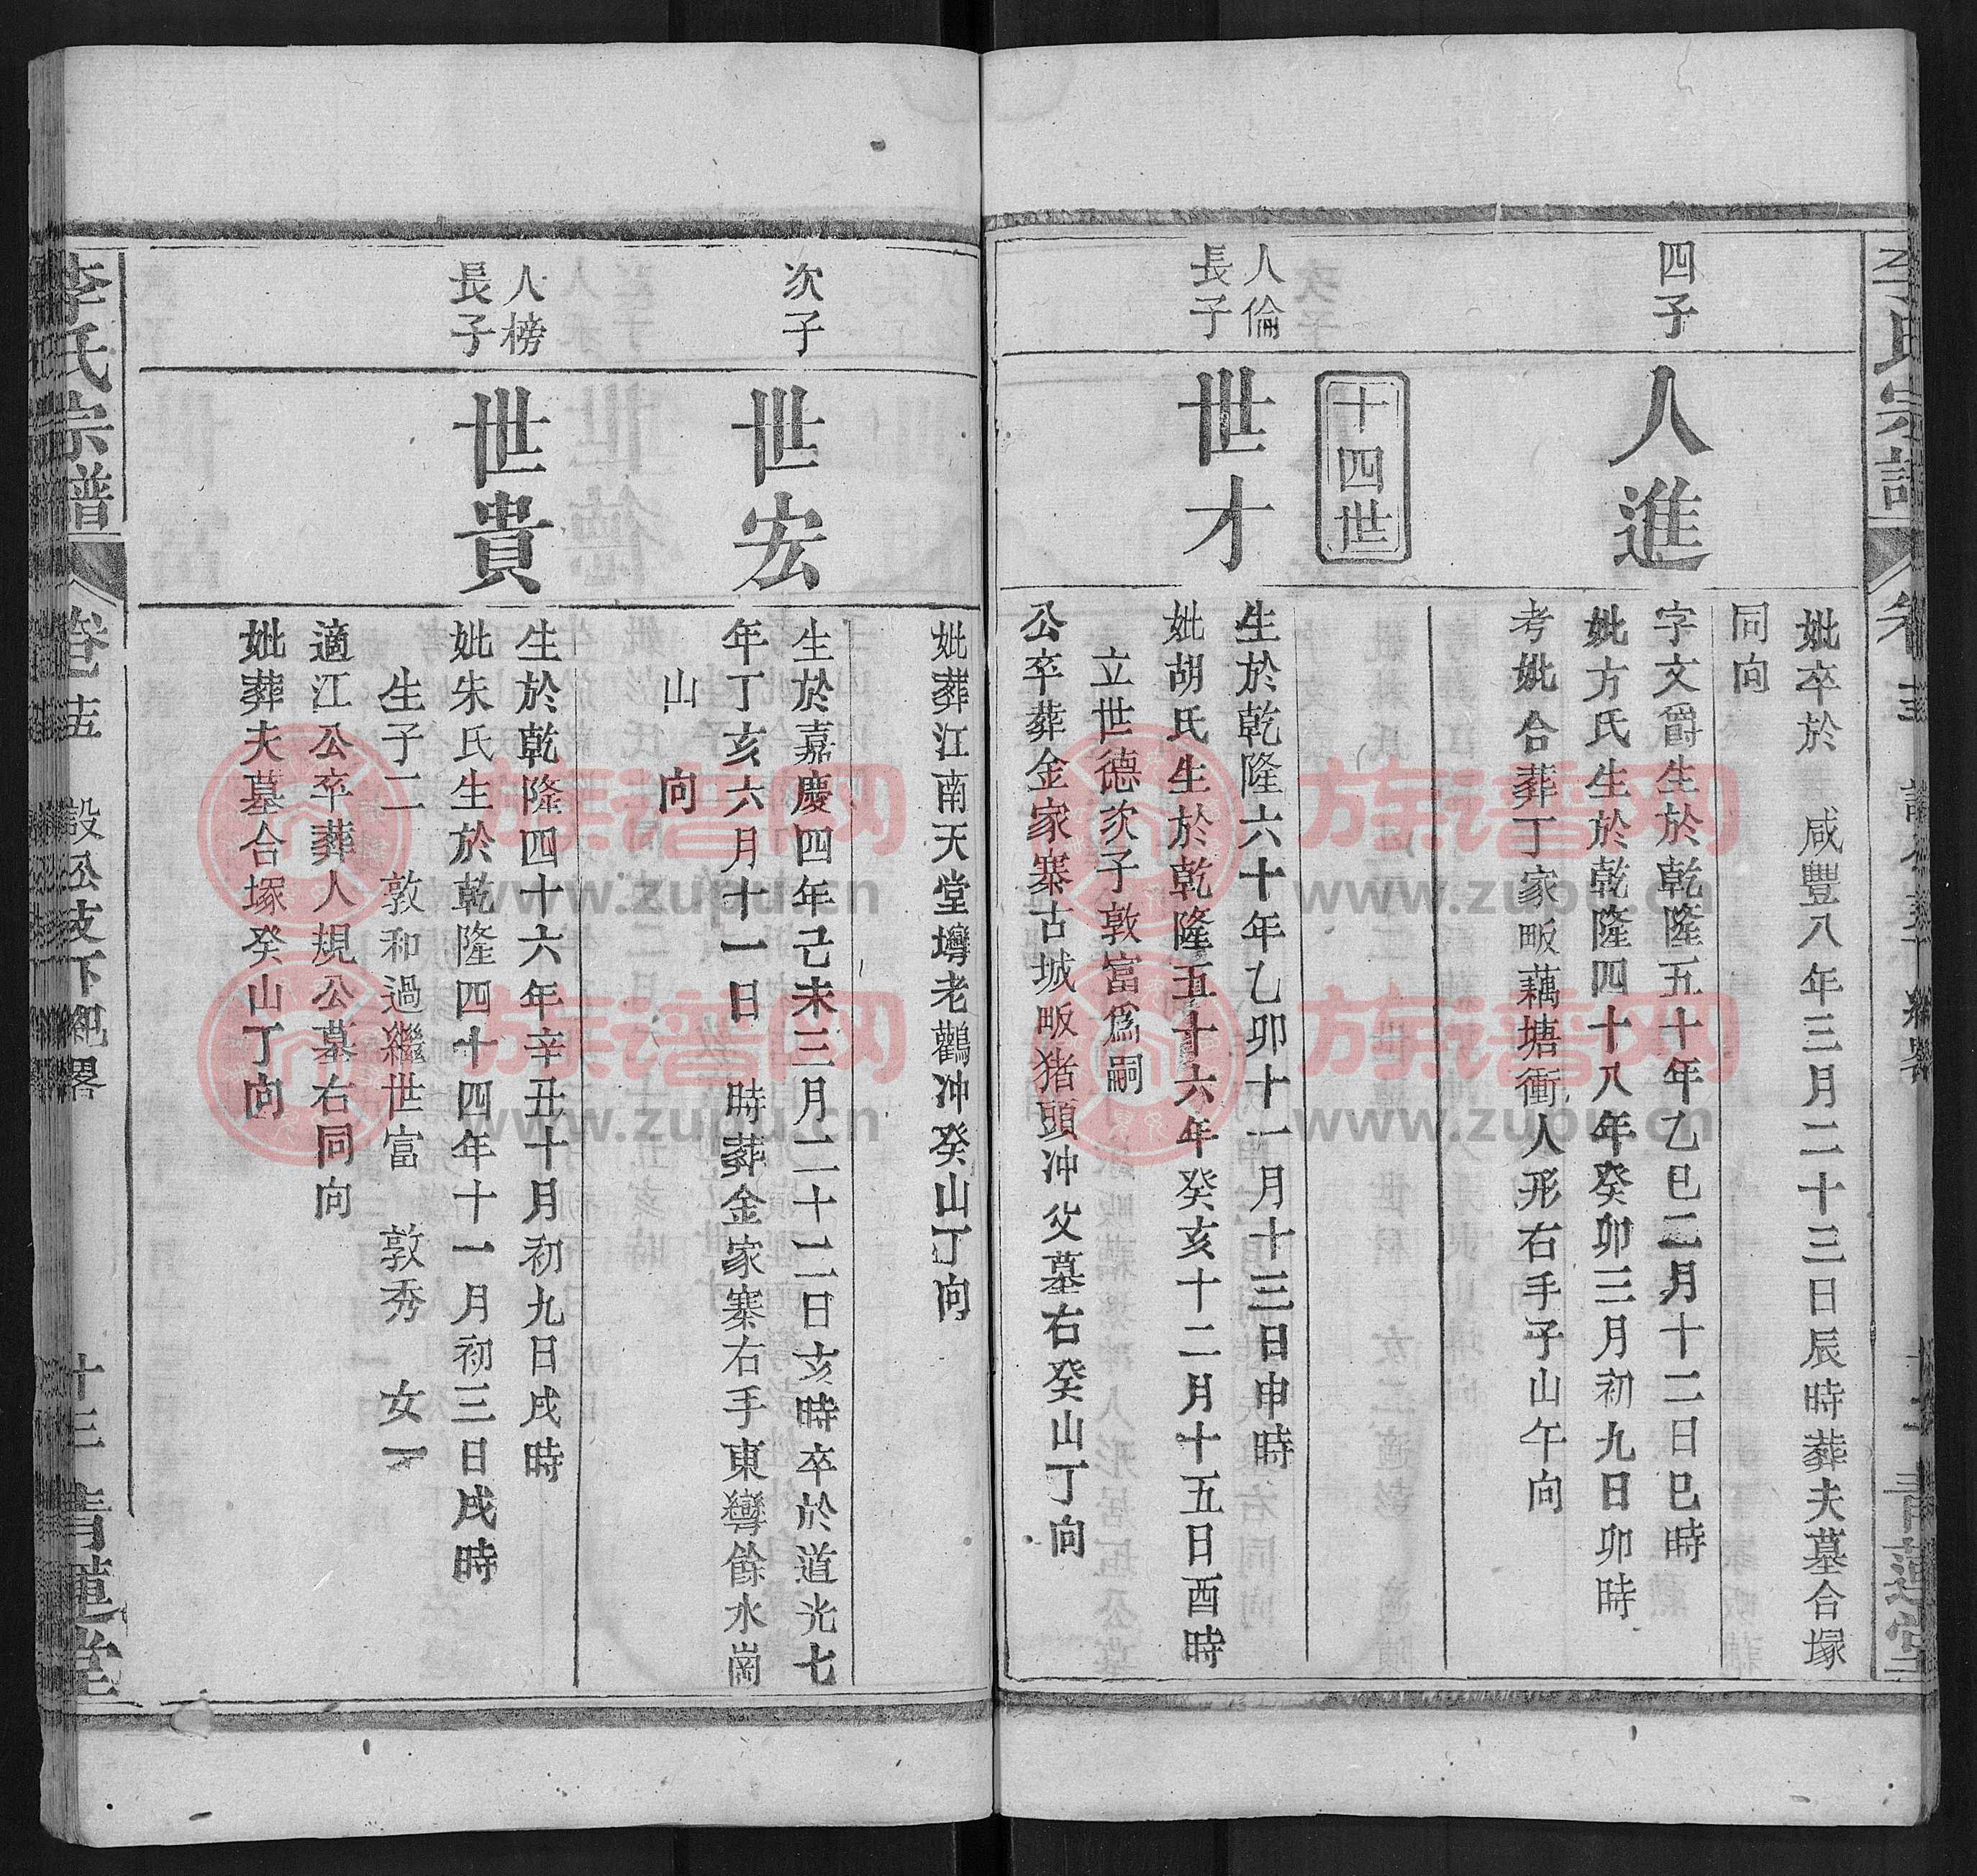 妣卒於 咸豐八年三月二十三日辰時葬夫墓合塚
同向
四子
人進
字文爵生於乾隆五十年乙巳二月十二日巳時
妣方氏生於乾隆四十八年癸卯三月初九日卯時
考妣合葬丁家畈藕塘衝人形右手子山午向
十四世
人倫
長子
世才
生於乾隆六十年乙卯十一月十三日申時
妣胡氏生於乾隆五十六年癸亥十二月十五日酉時
立世德次子敦富爲嗣
公卒葬金家寨古城畈猪頭冲父墓右癸山丁向
妣葬江南天堂塆老鸛冲癸山丁向
次子
世宏
生於嘉慶四年己未三月二十二日亥時卒於道光七
年丁亥六月十一日 時葬金家寨右手東灣餘水崗
山 向
人榜
長子
世貴
生於乾隆四十六年辛丑十月初九日戌時
妣朱氏生於乾隆四十四年十一月初三日戌時
生子二 敦和過繼世富 敦秀 女一
適江公卒葬人規公墓右同向
妣葬夫墓合塚癸山丁向
李氏宗譜 卷 青蓮堂
李氏宗譜 卷 十三 青蓮堂
族谱网
www.zupu.cn
族谱网
www.zupu.cn
族谱网
www.zupu.cn
族谱网
www.zupu.cn